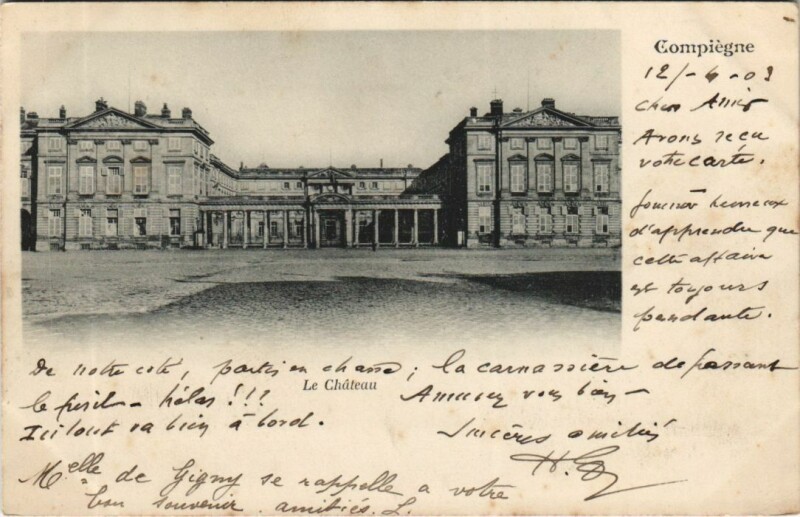 Compiègne
12/-6-03
Chers Amis
Avons reçu
votre carte.
heureux
d'apprendre que
cette affaire
est toujours
pendante.
De notre coté, parties en chasse ; la carnassière dépassant
Le Château
le fusil - hélas !!!
Amusez vous bien -
Ici tout va bien à bord.
Sincères amitiés
Melle de Gigny se rappelle a votre
bon souvenir. amitiés. L.